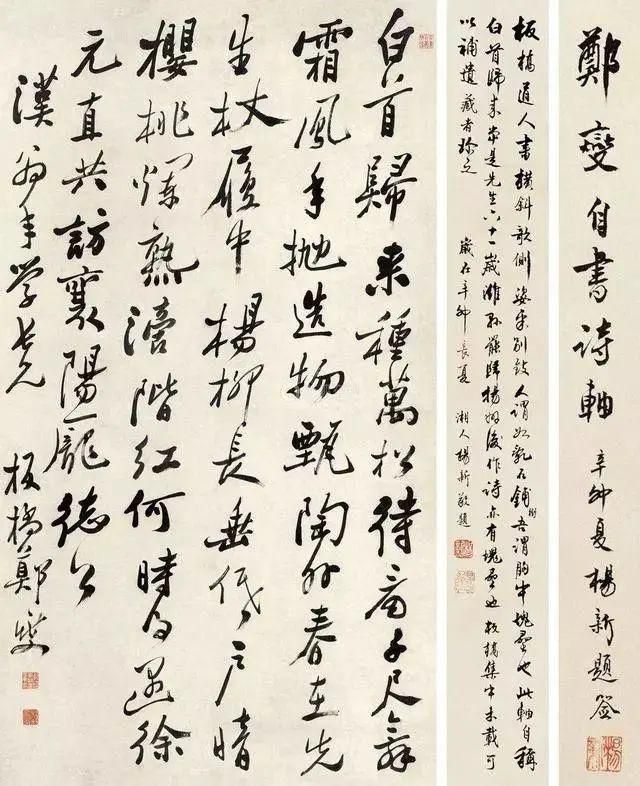 鄭燮自書詩軸 辛卯夏楊新題簽
板橋道人書橫斜欹側姿采別致人謂如亂石鋪街吾謂胸中塊壘也此軸自稱
白首歸來當是先生六十一歲濰縣罷歸揚州後作詩亦有塊壘也板橋集中未載可
以補遺藏者珍之 歲在辛卯長夏 湘人楊新敬題
白首歸來種萬松待看千尺舞
霜風年拋造物甄陶外春在先
生杖履中楊柳長垂低戶暗
櫻桃爛熟滴階紅何時遇徐
元直共訪襄陽龐德公
漢翁年學老兄 板橋鄭燮